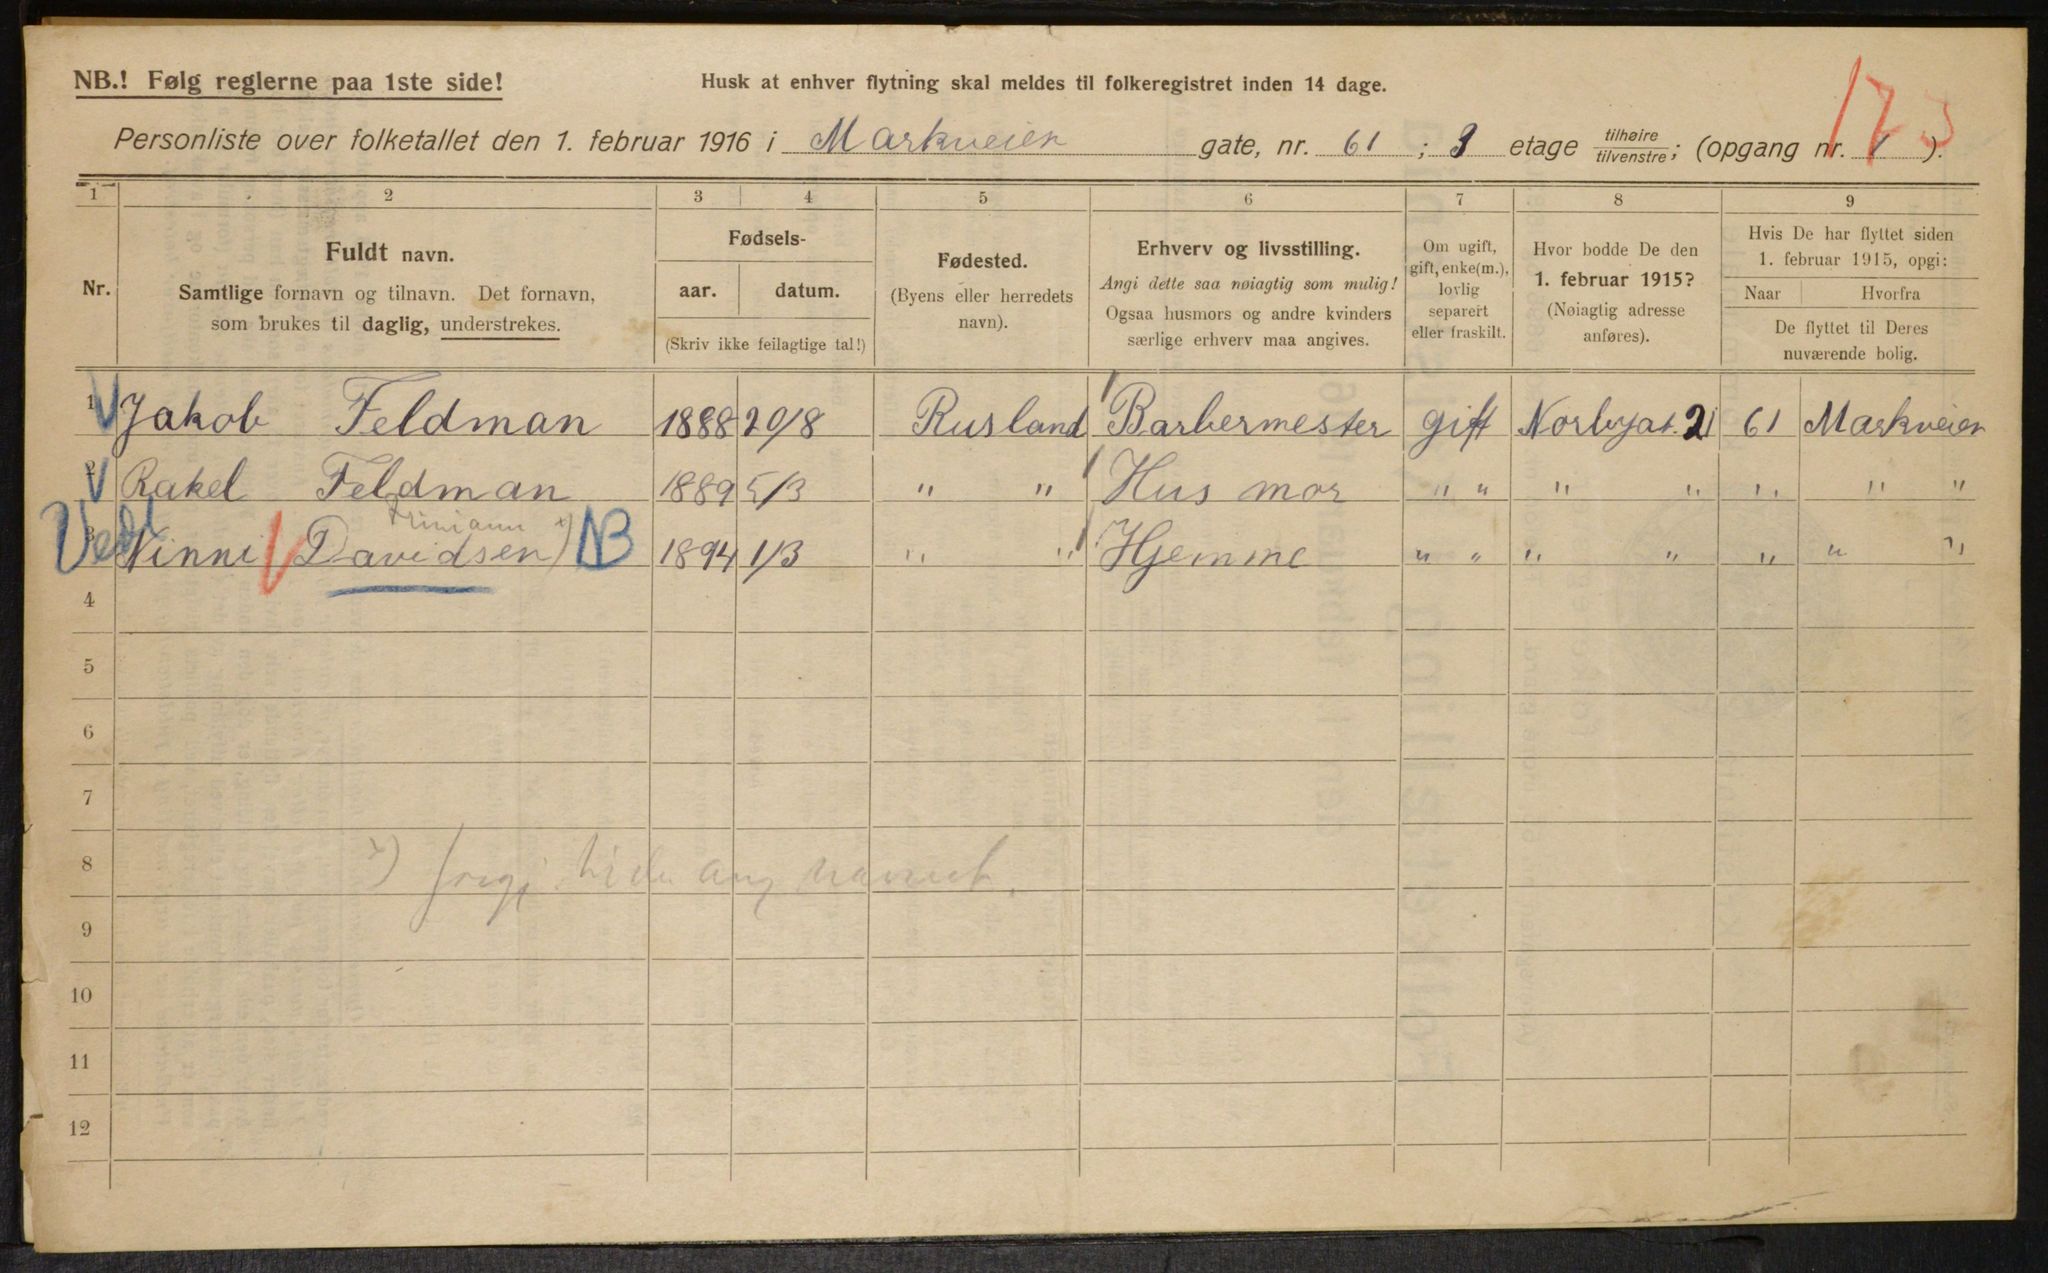 NB.! Følg reglerne paa 1ste side!
Husk at enhver flytning skal meldes til folkeregistret inden 14 dage.
173
Personliste over folketallet den 1. februar 1916 i Markveien gate, nr. 61 ; 3 etage tilhøire/tilvenstre; (opgang nr. 1 ).
1 2 3 4 5 6 7 8 9
Nr.
Fuldt navn.
Samtlige fornavn og tilnavn. Det fornavn,
som brukes til daglig, understrekes.
Fødsels-
aar. datum.
(Skriv ikke feilagtige tal!)
Fødested.
(Byens eller herredets
navn).
Erhverv og livsstilling.
Angi dette saa nøiagtig som mulig!
Ogsaa husmors og andre kvinders
særlige erhverv maa angives.
Om ugift,
gift, enke(m.),
lovlig
separert
eller fraskilt.
Hvor bodde De den
1. februar 1915?
(Nøiagtig adresse
anføres).
Hvis De har flyttet siden
1. februar 1915, opgi:
Naar Hvorfra
De flyttet til Deres
nuværende bolig.
1 Jakob Feldman 1888 20/8 Rusland Barbermester gift Norbygat. 21 61 Markveien
2 Rakel Feldman 1889 5/3 " " Hus mor " " " " " " "
3 Ninni Davidsen x) NB 1894 1/3 " " Hjemme " " " " " " "
4
5
6
7
8
9
10
11
12